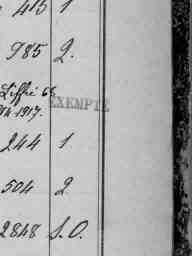 415 1
985 2.
Liffré 65
1917.
EXEMPTÉ
244 1
504 2
2848 S.O.